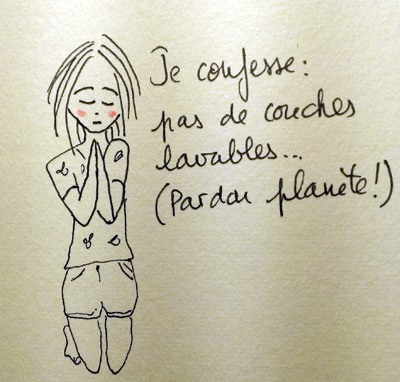 Je confesse:
pas de couches
lavables...
(Pardon planète!)